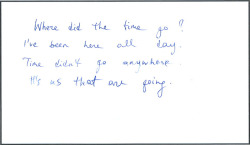 Where did the time go?
I've been here all day.
Time didn't go anywhere.
It's us that are going.